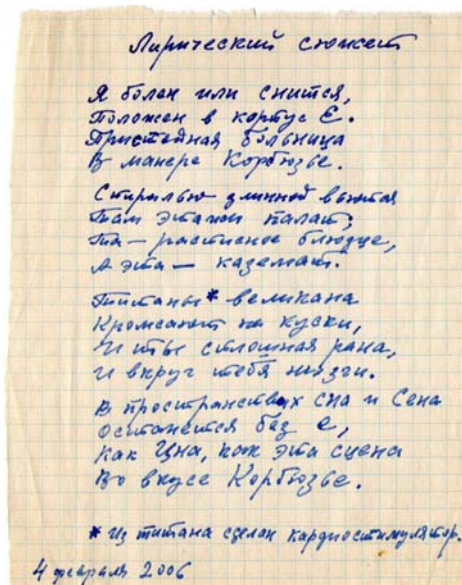 Лирический сюжет
Я болен или снится,
Положен в корпус Е.
Пристойная больница
В манере Корбюзье.
Спиралью длинной вьются
Там этажи палат;
Та — расписное блюдце,
А эта — каземат.
Титаны* великана
Кромсают на куски,
И ты сплошная рана,
И вкруг тебя ни зги.
В пространствах сна и Сена
Останется без е,
Как Цна, как эта сцена
Во вкусе Корбюзье.
* Из титана сделан кардиостимулятор.
4 февраля 2006